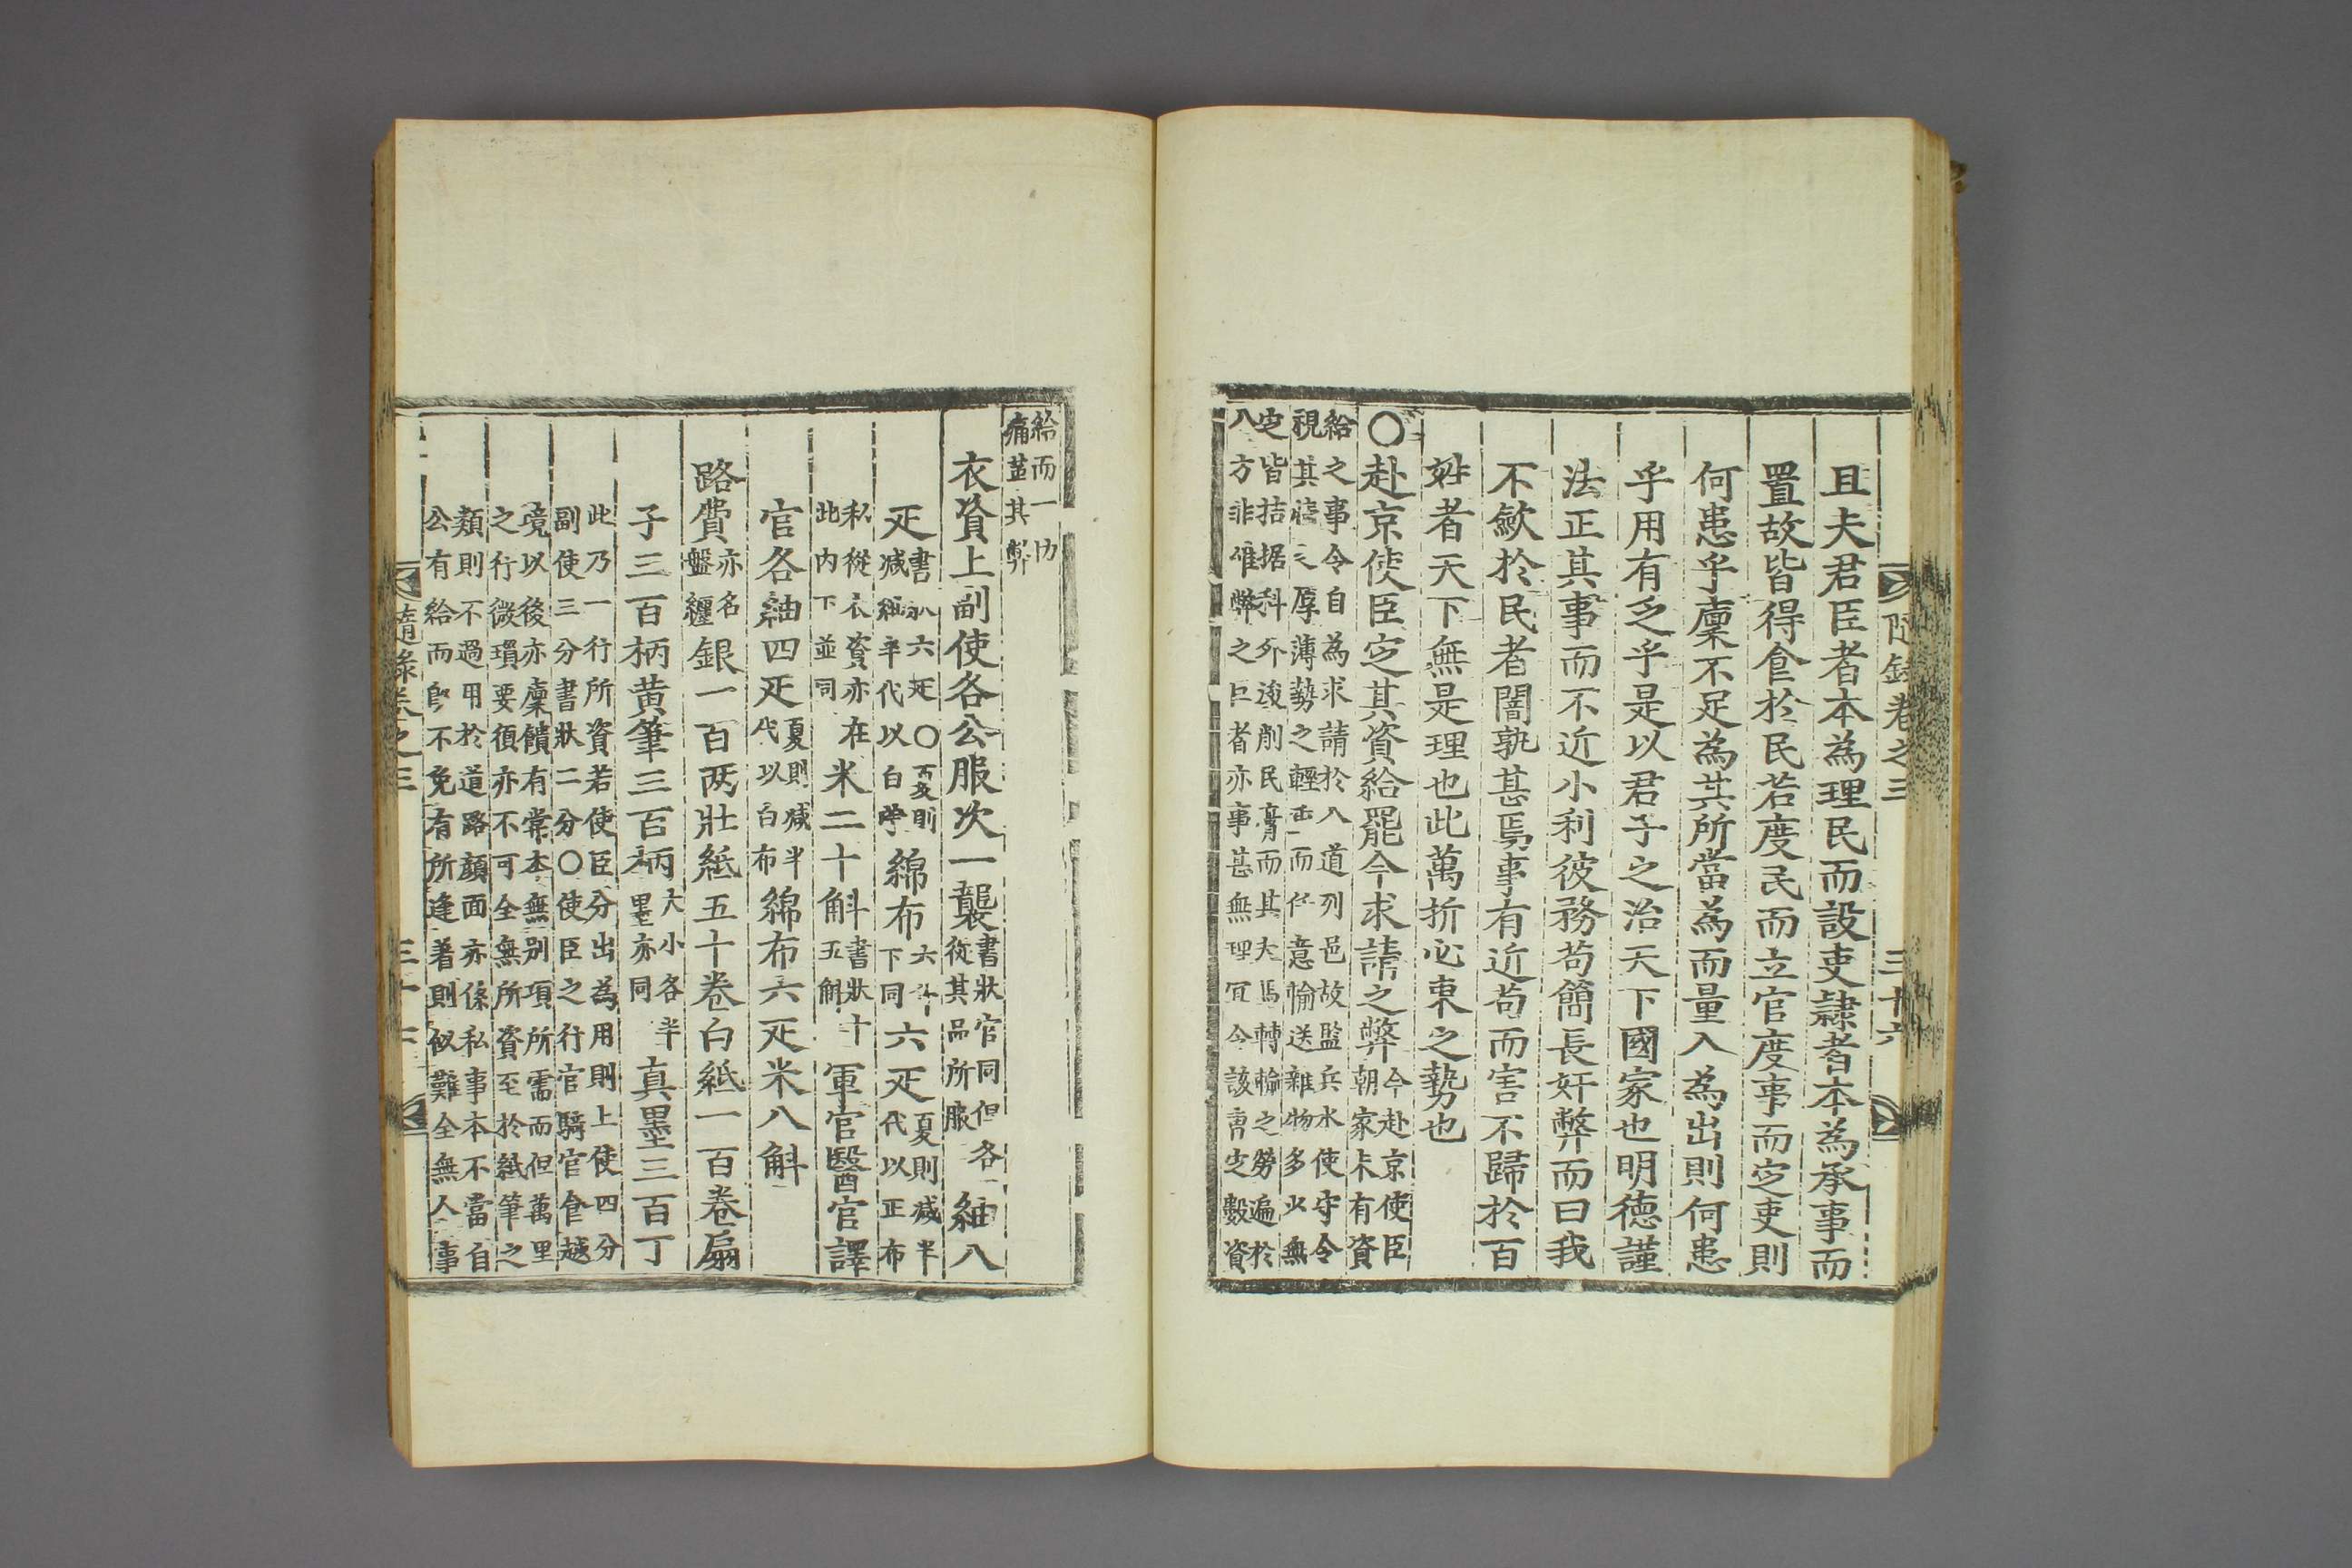 隨錄卷之三 三十六
且夫君臣者本為理民而設吏隷者本為承事而
置故皆得食於民若度民而立官度事而定吏則
何患乎廩不足為其所當為而量入為出則何患
乎用有乏乎是以君子之治天下國家也明德謹
法正其事而不近小利彼務苟簡長奸弊而曰我
不歛於民者闇孰甚焉事有近苟而害不歸於百
姓者天下無是理也此萬折必東之勢也
〇赴京使臣定其資給罷今求請之弊
今赴京使臣
朝家未有資
給之事令自為求請於八道列邑故監兵水使守令
視其 之厚薄勢之輕重而任意愉送雜物多少無
定皆拮据科外浚削民膏而其夫馬轉輸之勞遍於
八方非唯弊之巨者亦事甚無理冝令該曹定數資
給而一切
痛革其弊
衣資上副使各公服次一襲
書狀官同但各
從其品所服
紬八
疋
書狀六疋〇夏則
减 半代以白
綿布
六
下同
六疋
夏則减半
代以正布
私從衣資亦在
此內下並同
米二十斛
書狀十
五斛
軍官醫官譯
官各紬四疋
夏則减半
代以白布
綿布六疋米八斛
路費
亦名
盤纏
銀一百两壯紙五十卷白紙一百卷扇
子三百柄黄筆三百柄
大小各半
墨亦同
真墨三百丁
此乃一行所資若使臣分出為用則上使四分
副使三分書狀二分〇使臣之行官騎官食越
境以後亦廩饋有常本無別項所需而但萬里
之行微瑣要須亦不可全無所資至於紙筆之
類則不過用於道路顔面亦係私事本不當自
公有給而 不免有所逢着則似難全無人事
隨錄卷之三